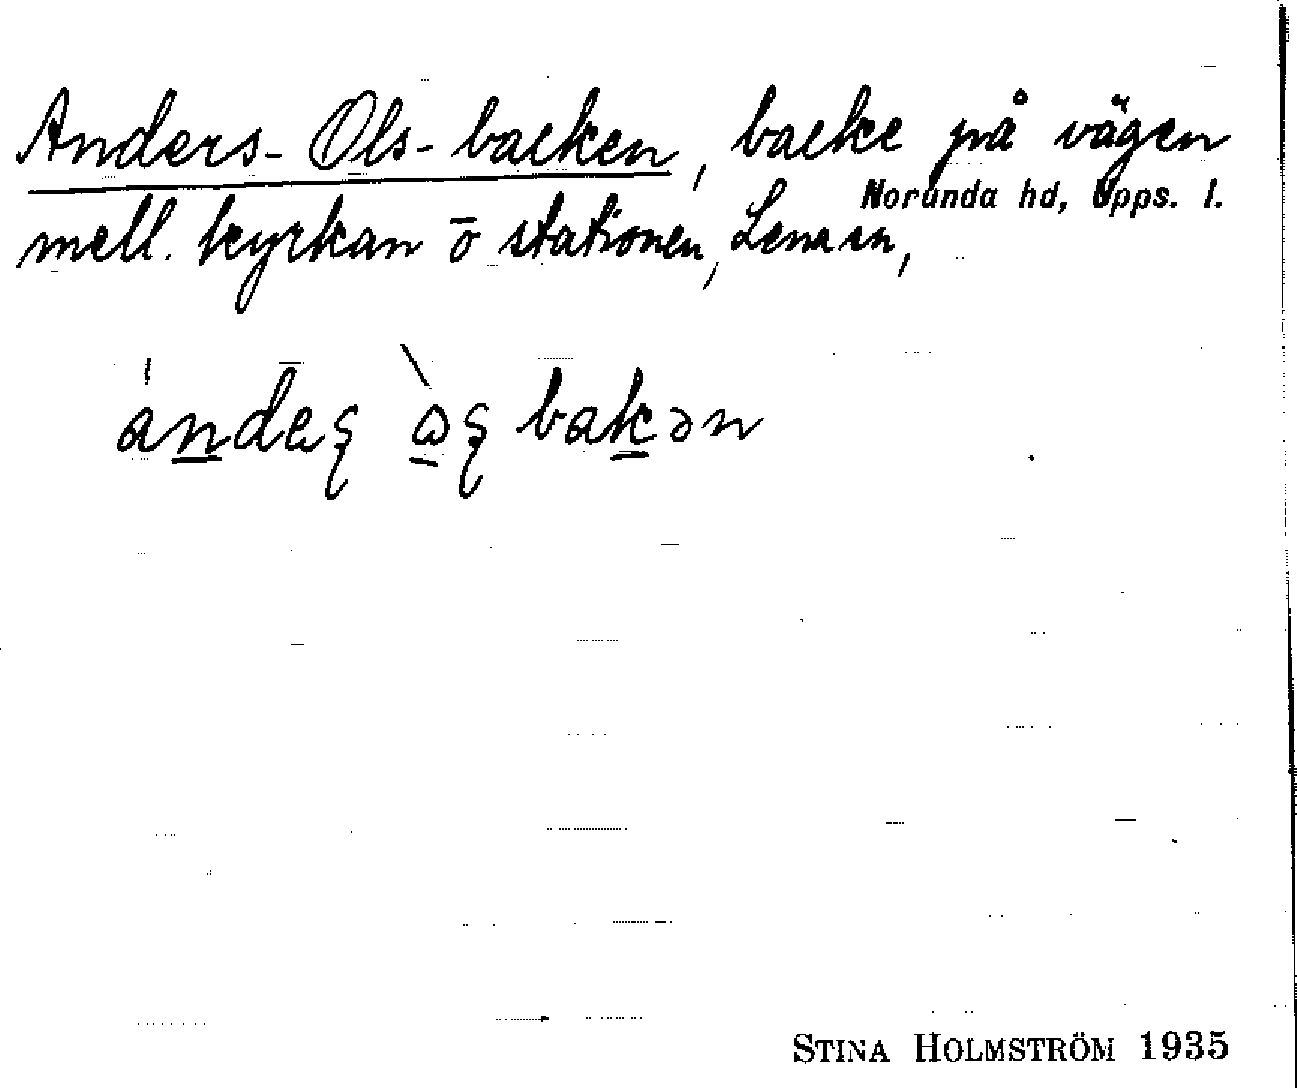 Anders-Ols-backen, backe på vägen
Norunda hd, Upps. l.
mell. kyrkan o stationen, Lena sn,
andeʂ ɷʂ bakən
STINA HOLMSTRÖM 1935